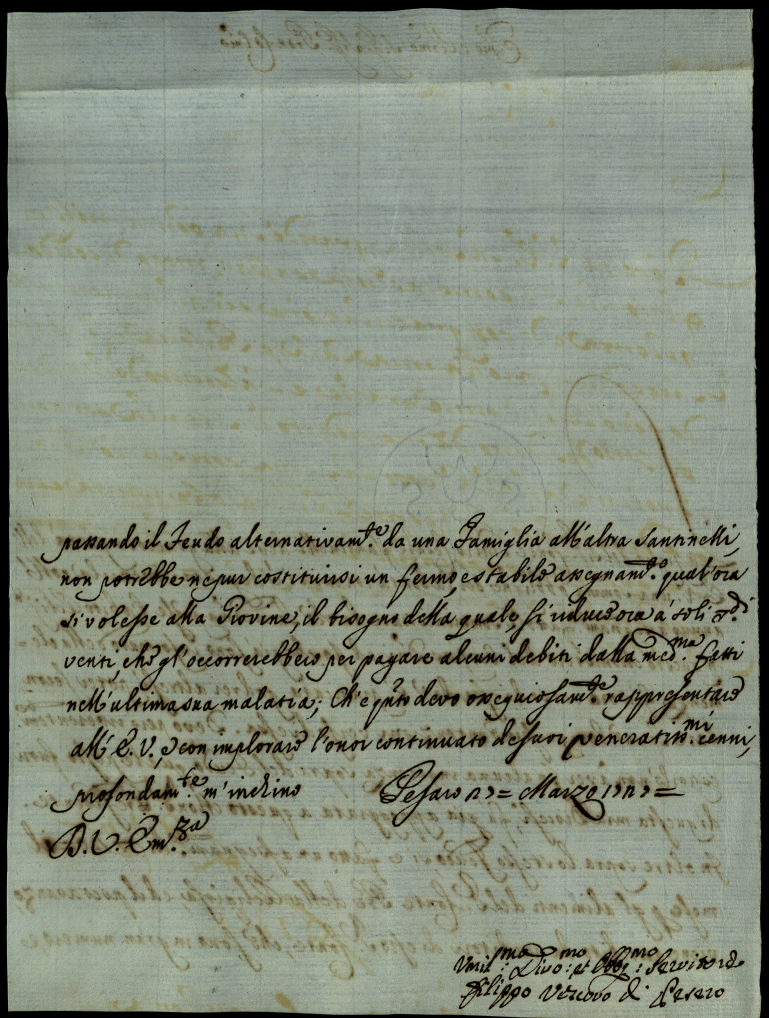 passando il Feudo alternativam.te da una Famiglia all'altra Santinelli,
non potrebbe nepur costituirsi un fermo, e stabile assegnam.to qual'ora
si volesse alla Giovine, il bisogno della quale, si riduce ora à soli
venti, che gl'occorrerebbero per pagare alcuni debiti dalla med.ma fatti
nell'ultima sua malatia; Ch'è q.to devo ossequiosam.te rappresentare
all'E. V., e con implorare l'onor continuato de suoi veneratiss.mi cenni,
profondam.te m'inchino Pesaro Marzo
D. V. Em.za
Umil.mo Divo.mo et Obbg.mo Servitore
Filippo Vescovo di Pesaro